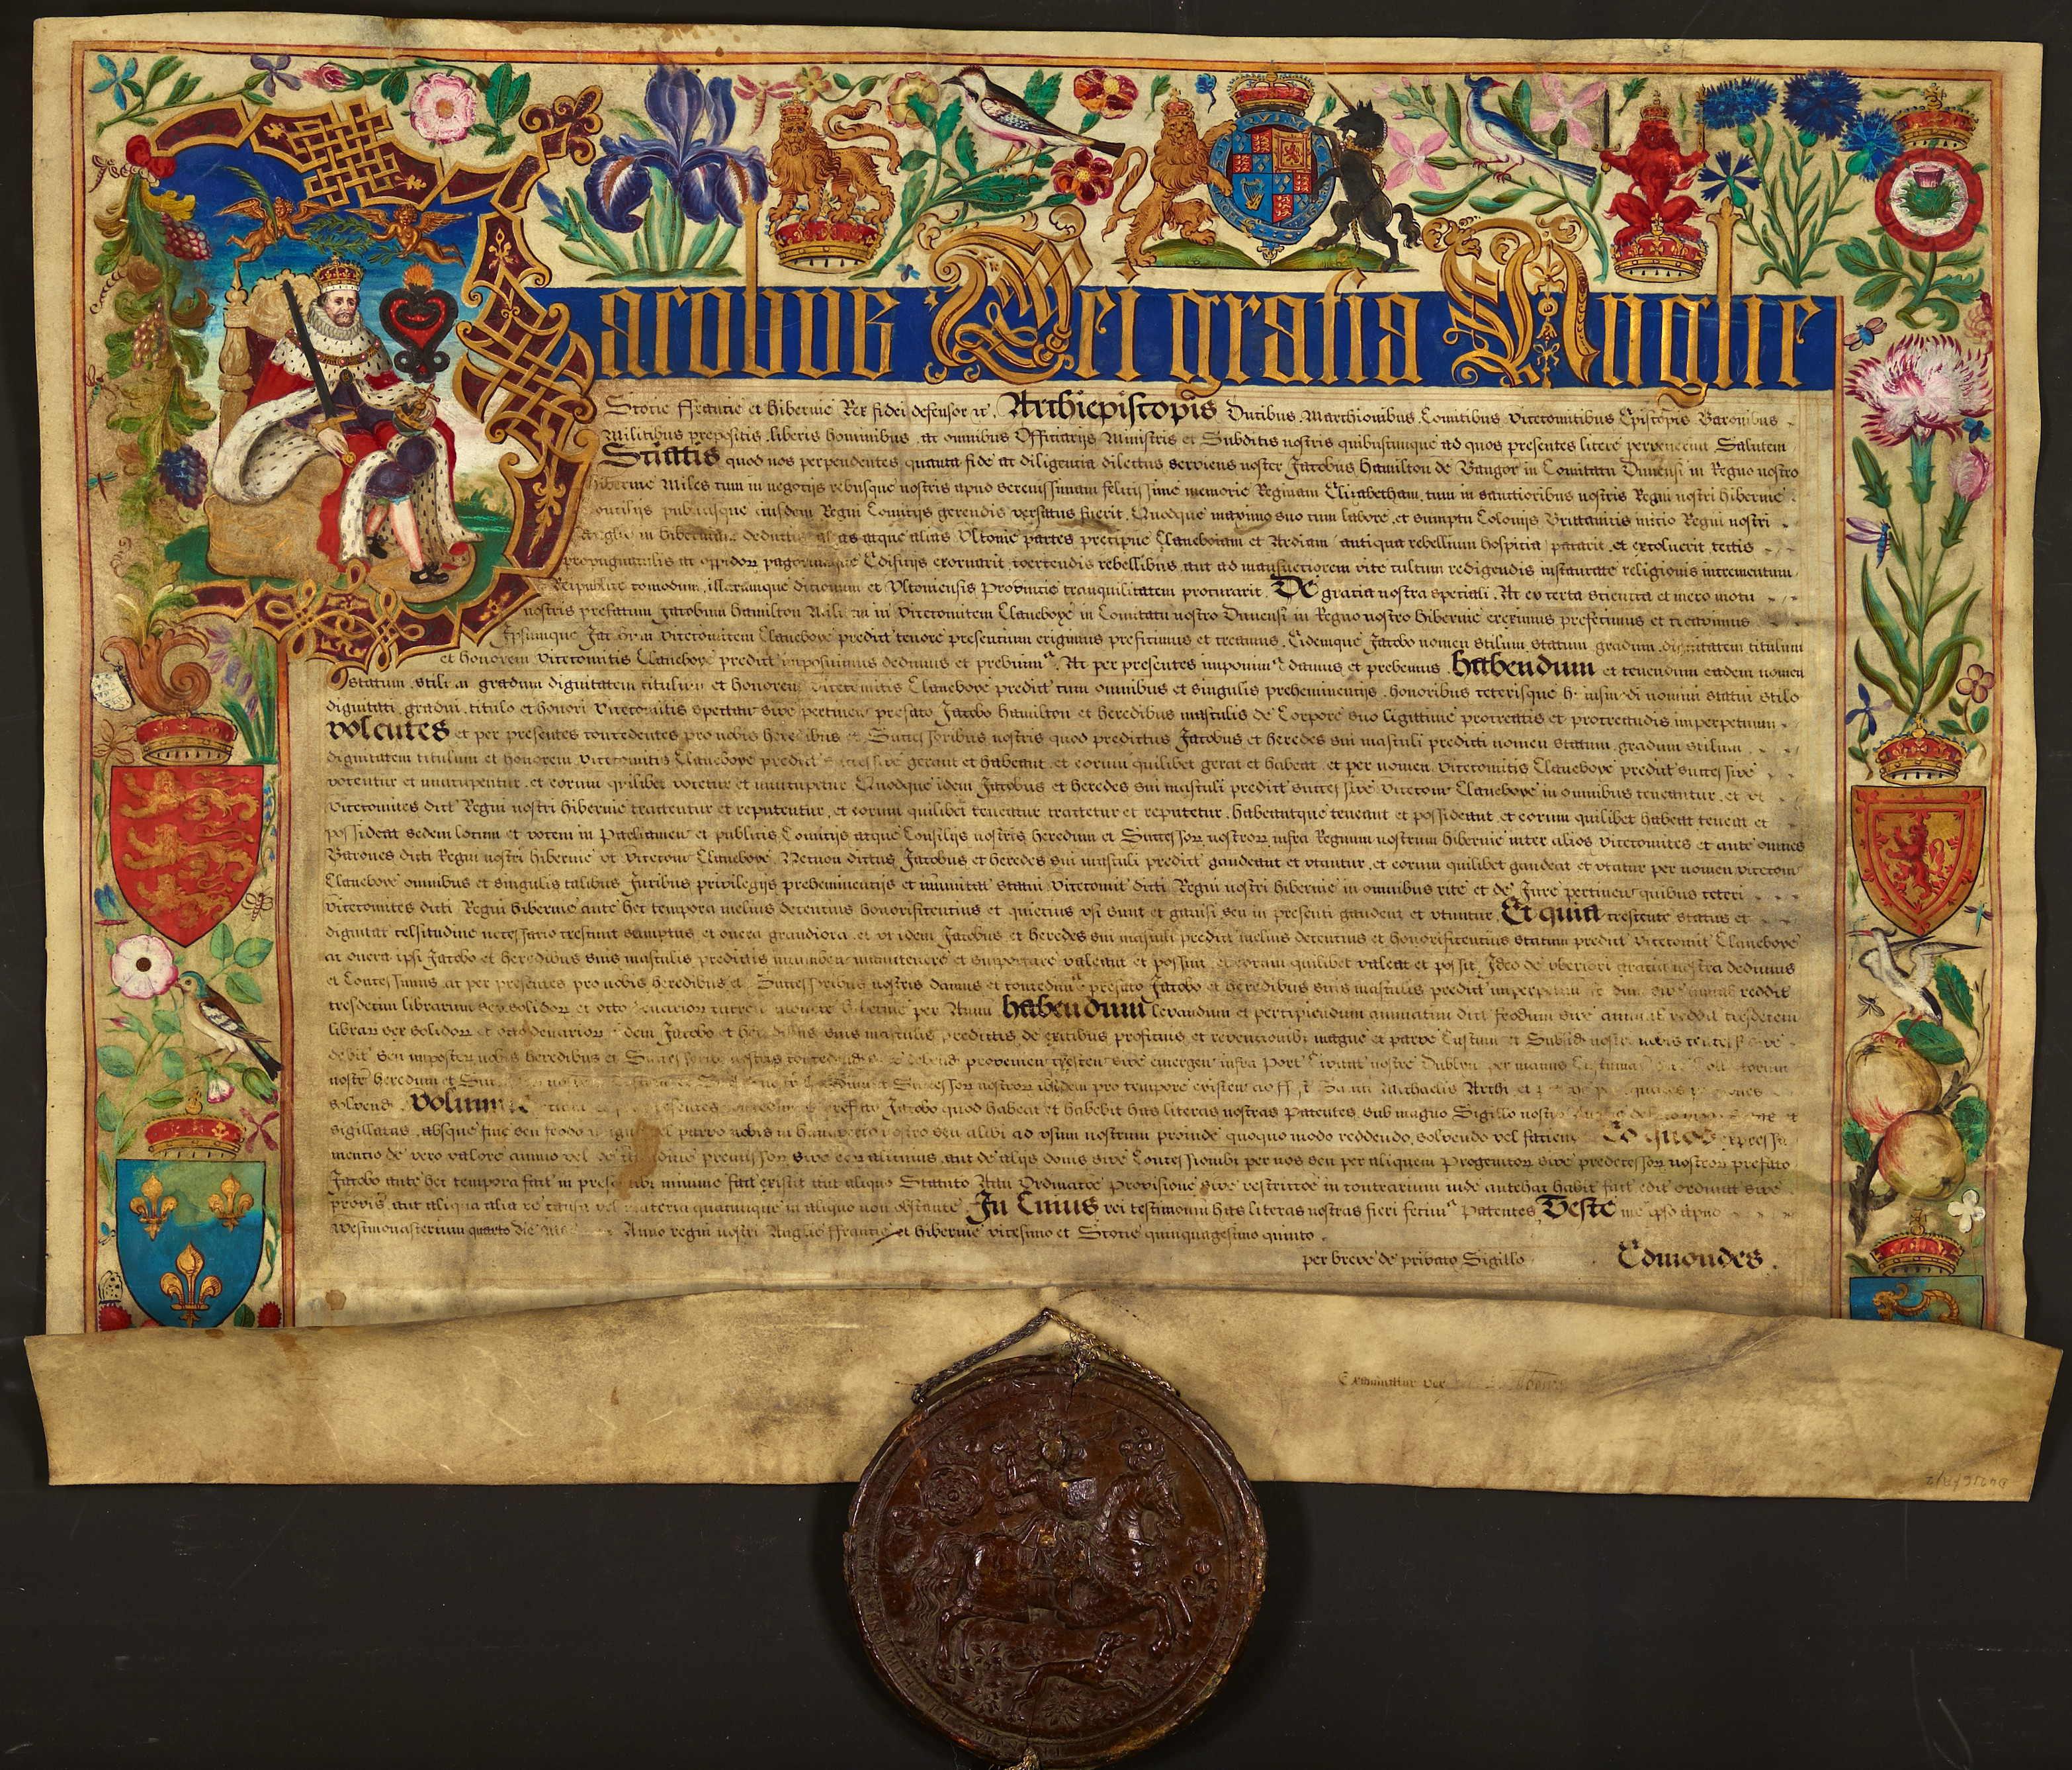 Jacobus Dei gratia Anglie
Scotie Ffrancie et Hibernie Rex fidei defensor &c. Archiepiscopis Ducibus Marchionibus Comitibus Vicecomitibus Episcopis Baronibus
Militibus prepositis liberis hominibus ac omnibus Officiarijs Ministris et Subditis nostris quibuscumque ad quos presentes litere pervenerint Salutem
Sciatis quod nos perpendentes quanta fide ac diligentia dilectus serviens noster Jacobus Hamilton de Bangor in Comitatu Dunensi in Regno nostro
Hibernie Miles tum in negotijs rebusque nostris apud serenissimam felicissime memorie Reginam Elizabetham, tum in sanctioribus nostris Regni nostri Hibernie
Concilijs publicisque eiusdem Regni Comitijs gerendis versatus fuerit, Quodque maximo suo cum labore et sumptu Colonijs Brittanicis initio Regni nostri
Anglie in Hiberniam deductis has atque alias Vltonie partes precipue Claneboiam et Ardiam (antiqua rebellium hospicia) pacarit et excoluerit, tectis
propugnaculis ac oppidor pagorumque Edificijs exornarit, coercendis rebellibus, aut ad mansuetiorem vite cultum redigendis instaurate religionis incrementum
Reipublice comodum, illarumque dictionum et Vltoniensis Provincie tranquilitatem procurarit. De gratia nostra speciali Ac ex certa scientia et mero motu
nostris prefatum Jacobum Hamilton Militem in Vicecomitem Claneboye in Comitatu nostro Dunensi in Regno nostro Hibernie ereximus prefecimus et creavimus
Ipsumque Jacobum Vicecomitem Claneboye predict tenore presentium erigimus preficimus et creamus, Eidemque Jacobo nomen stilum statum gradum dignitatem titulum
et honorem Vicecomitis Claneboye predict imposuimus dedimus et prebuim Ac per presentes imponim damus et prebemus Habendum et tenendum eadem nomen
statum stilum gradum dignitatem titulum et honorem Vicecomitis Claneboye predict cum omnibus et singulis preheminencijs honoribus ceterisque hmoi nomini statui stilo
dignitati, gradui, titulo et honori Vicecomitis spectan sive pertinen prefato Jacobo Hamilton et heredibus masculis de Corpore suo legitime procreatis et procreandis imperpetuum
Volentes et per presentes concedentes pro nobis heredibus et Successoribus nostris quod predictus Jacobus et heredes sui masculi predicti nomen statum gradum stilum
dignitatem titulum et honorem Vicecomitis Claneboye predict successive gerant et habeant, et eorum quilibet gerat et habeat, et per nomen Vicecomitis Claneboye predict successive
vocentur et nuncupentur, et eorum quilibet vocetur et nuncupetur, Quodque idem Jacobus et heredes sui masculi predict successive Vicecom Claneboye in omnibus teneantur, et vt
Vicecomites dict Regni nostri Hibernie tractentur et reputentur, et eorum quilibet teneatur tractetur et reputetur, habeantque teneant et possideant, et eorum quilibet habeat teneat et
possideat sedem locum et vocem in Parliament et publicis Comitijs atque Consilijs nostris heredum et Successor nostror infra Regnum nostrum Hibernie inter alios Vicecomites et ante omnes
Barones dicti Regni nostri Hibernie vt Vicecom Claneboye, Necnon dictus Jacobus et heredes sui masculi predict gaudeant et vtantur, et eorum quilibet gaudeat et vtatur per nomen Vicecom
Claneboye omnibus et singulis talibus Juribus privilegijs preheminencijs et immunitat statui Vicecomit dicti Regni nostri Hibernie in omnibus rite et de Jure pertinen quibus ceteri
Vicecomites dicti Regni Hibernie ante hec tempora melius decentius honorificentius et quietius vsi sunt et gavisi seu in presenti gaudent et vtuntur, Et quia crescente status et
dignitat celsitudine necessario crescunt sumptus et onera grandiora et vt idem Jacobus et heredes sui masculi predict melius decentius et honorificentius statum predict Vicecomit Claneboye
ac onera ipsi Jacobo et heredibus suis masculis predictis incumben manutenere et supportare valeant et possint, et eorum quilibet valeat et possit, Ideo de vberiori gratia nostra dedimus
et Concessimus ac per presentes pro nobis heredibus et Successoribus nostris damus et concedim prefato Jacobo et heredibus suis masculis predict imperpetuum feodum sive annual reddit
tresdecim librarum sex solidor et octo denarior curren monete Hibernie per Annu Habendum levandum et percipiendum annuatim dict feodum sive annual reddit tresdecim
librar sex solidor et octo denarior eidem Jacobo et heredibus suis masculis predictis de exitibus proficuis et revencionibz magne et parve Custum et Subsid nostr nobis concess sive
debit seu imposter nobis heredibus et Successoribus nostris provenien crescen sive emergen infra Port Civitat nostre Dublyn per manus Custumar
nostr heredum et Successor nostror ibidem pro tempore existen ad ff Sancti Michaelis Archi et
solvend Volumus Jacobo quod habeat et habebit has literas nostras Patentes sub magno Sigillo nostro
sigillatas absque fine seu feodo magno vel parvo nobis in Hanaperio nostro seu alibi ad vsum nostrum proinde quoquo modo reddendo, solvendo vel faciend Eo quod expressa
mentio de vero valore annuo vel de certitudine premissor sive eor alicuius, aut de alijs donis sive Concessionibz per nos seu per aliquem Progenitor sive predecessor nostror prefato
Jacobo ante hec tempora fact in presentibz minime fact existit aut aliquo Statuto Actu Ordinacoe Provisione sive restriccoe in contrarium inde antehac habit fact edit ordinat sive
provis, aut aliqua alia re causa vel materia quacunque in aliquo non obstante, In Cuius rei testimoniu has literas nostras fieri fecim Patentes, Teste me ipso apud
Westmonasterium quarto die Anno regni nostri Anglie Ffrancie et Hibernie vicesimo et Scotie quinquagesimo quinto.
per breve de privato Sigillo
Edmondes.
Examinatur per